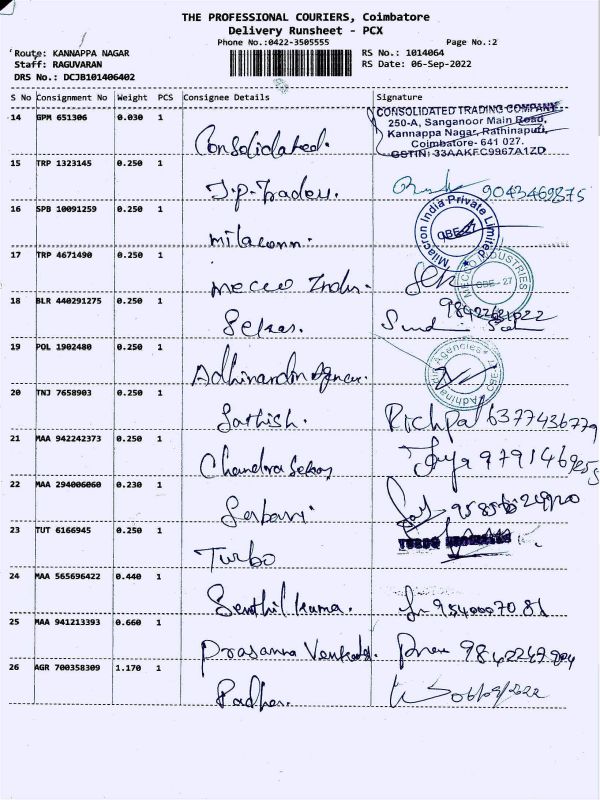 THE PROFESSIONAL COURIERS, Coimbatore
Delivery Runsheet - PCX
Phone No.:0422-3505555
Page No.:2
Route: KANNAPPA NAGAR
RS No.: 1014064
Staff: RAGUVARAN
RS Date: 06-Sep-2022
DRS No.: DCJB101406402
S No Consignment No Weight PCS Consignee Details Signature
14 GPM 651306 0.030 1
Consolidated.
CONSOLIDATED TRADING COMPANY
250-A, Sanganoor Main Road,
Kannappa Nagar, Rathinapuri,
Coimbatore- 641 027.
GSTIN: 33AAKFC9967A1ZD
15 TRP 1323145 0.250 1
J.P. Traders. 9043469875
16 SPB 10091259 0.250 1
Milacron.
Milacron India Private Limited
CBE-27
17 TRP 4671490 0.250 1
Mecco Indus.
MECCO INDUSTRIES
CBE - 27
18 BLR 440291275 0.250 1
Sekar.
19 POL 1902480 0.250 1
Adhinardin Agencies.
Agencies
20 TNJ 7658903 0.250 1
Sathish. Richpal 6377436779
21 MAA 942242373 0.250 1
Chandra Sekar Jaya 979146
22 MAA 294006060 0.230 1
23 TUT 6166945 0.250 1
Turbo
TURBO
24 MAA 565696422 0.440 1
Senthil Kuma. 9540007081
25 MAA 941213393 0.660 1
Prasanna
26 AGR 700358309 1.170 1
Padhar. 06/09/2022